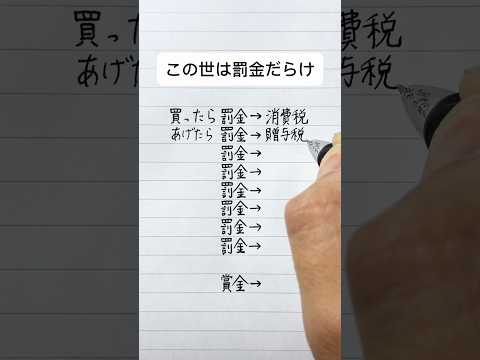 この世は罰金だらけ
買ったら 罰金→消費税
あげたら 罰金→贈与税
罰金→
罰金→
罰金→
罰金→
罰金→
罰金→
賞金→